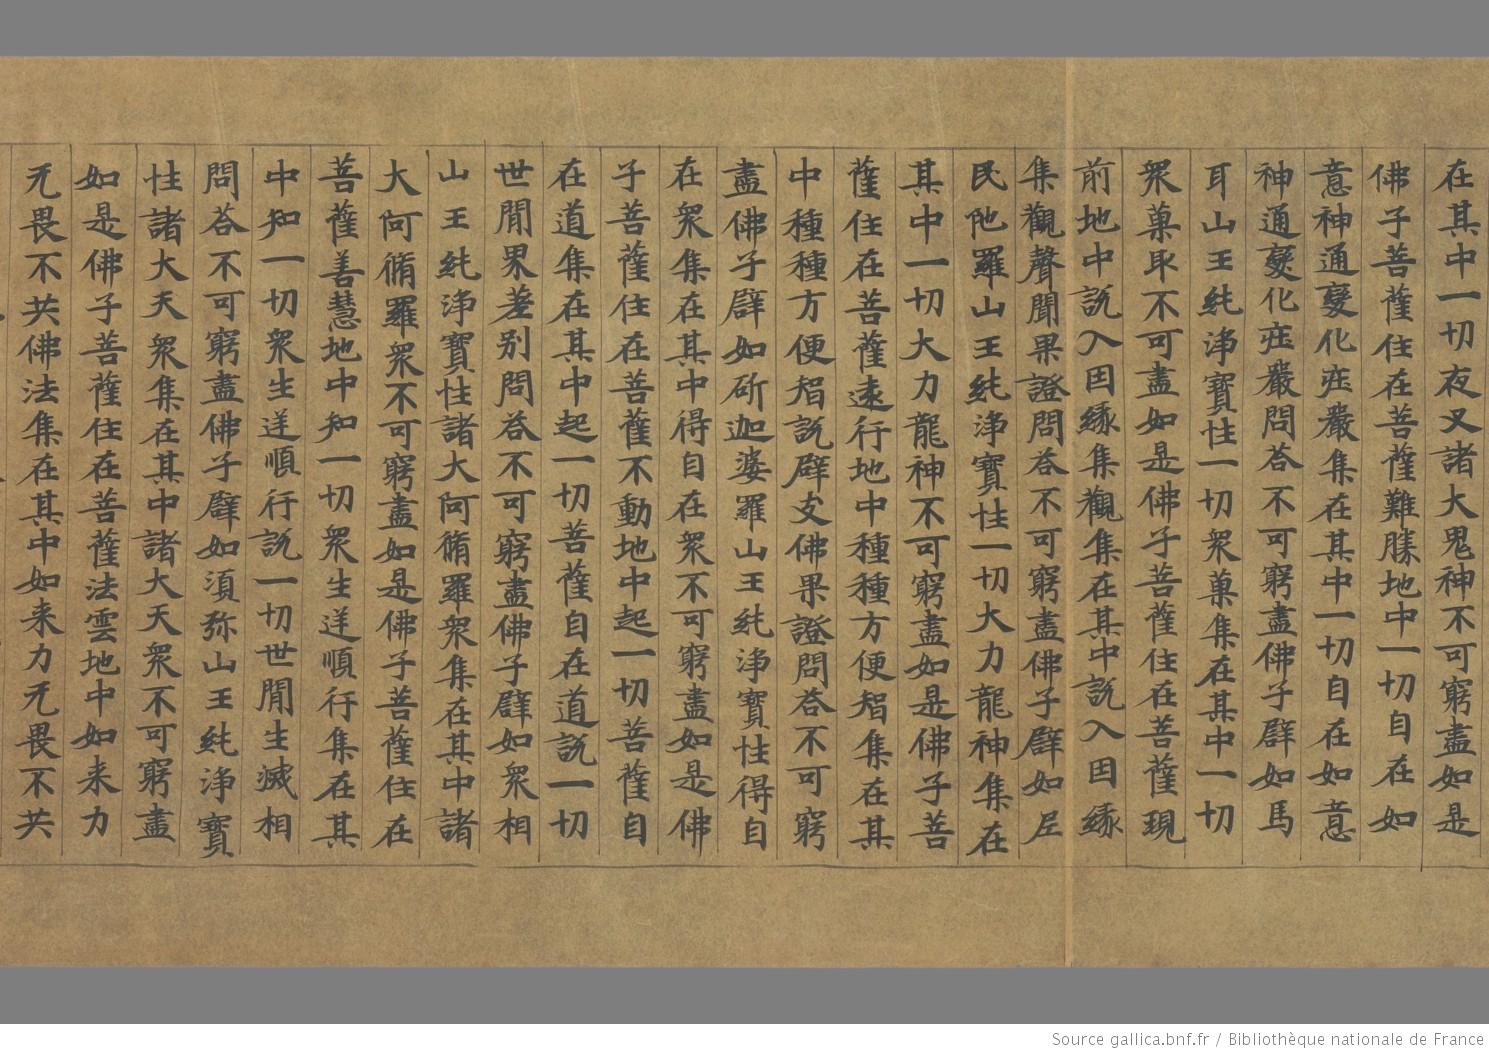 在其中一切夜叉諸大鬼神不可窮盡如是
佛子菩薩住在菩薩難勝地中一切自在如
意神通變化莊嚴集在其中一切自在如意
神通變化莊嚴問荅不可窮盡佛子辟如馬
耳山王純淨寶性一切眾菓集在其中一切
眾菓取不可盡如是佛子菩薩住在菩薩現
前地中說入因緣集觀集在其中說入因緣
集觀聲聞果證問荅不可窮盡佛子辟如尼
民陁羅山王純淨寶性一切大力龍神集在
其中一切大力龍神不可窮盡如是佛子菩
薩住在菩薩遠行地中種種方便智集在其
中種種方便智說辟支佛果證問荅不可窮
盡佛子辟如斫迦婆羅山王純淨寶性得自
在眾集在其中得自在眾不可窮盡如是佛
子菩薩住在菩薩不動地中起一切菩薩自
在道集在其中起一切菩薩自在道說一切
世間果差別問荅不可窮盡佛子辟如眾相
山王純淨寶性諸大阿脩羅眾集在其中諸
大阿脩羅眾不可窮盡如是佛子菩薩住在
菩薩善慧地中知一切眾生逆順行集在其
中知一切眾生逆順行說一切世間生滅相
問荅不可窮盡佛子辟如須弥山王純淨寶
性諸大天眾集在其中諸大天眾不可窮盡
如是佛子菩薩住在菩薩法雲地中如来力
无畏不共佛法集在其中如来力无畏不共
Source gallica.bnf.fr / Bibliothèque nationale de France